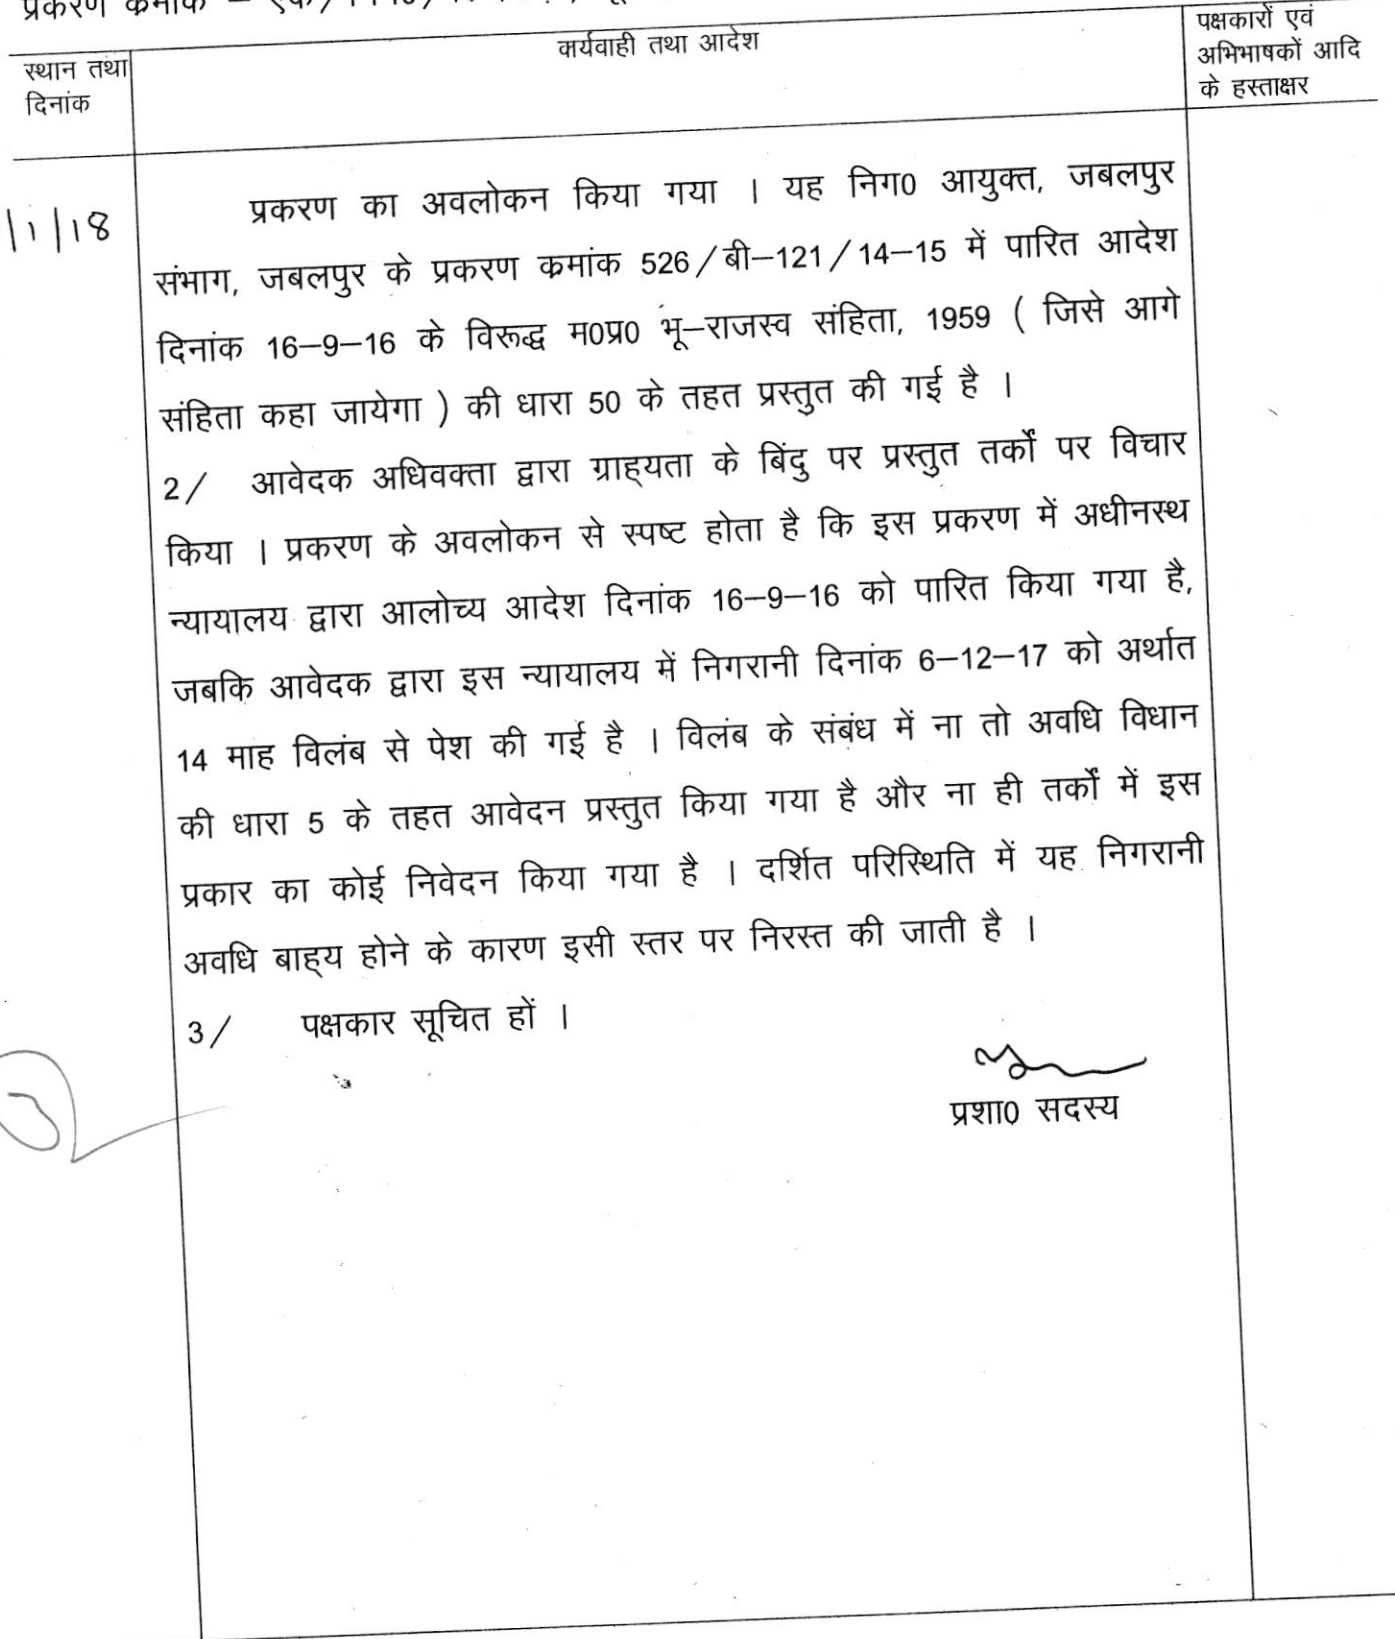 प्रकरण क्रमांक –
स्थान तथा
दिनांक
कार्यवाही तथा आदेश
पक्षकारों एवं
अभिभाषकों आदि
के हस्ताक्षर
/1/18
प्रकरण का अवलोकन किया गया । यह निग0 आयुक्त, जबलपुर
संभाग, जबलपुर के प्रकरण क्रमांक 526/बी–121/14–15 में पारित आदेश
दिनांक 16–9–16 के विरूद्ध म0प्र0 भू–राजस्व संहिता, 1959 ( जिसे आगे
संहिता कहा जायेगा ) की धारा 50 के तहत प्रस्तुत की गई है ।
2/ आवेदक अधिवक्ता द्वारा ग्राह्यता के बिंदु पर प्रस्तुत तर्कों पर विचार
किया । प्रकरण के अवलोकन से स्पष्ट होता है कि इस प्रकरण में अधीनस्थ
न्यायालय द्वारा आलोच्य आदेश दिनांक 16–9–16 को पारित किया गया है,
जबकि आवेदक द्वारा इस न्यायालय में निगरानी दिनांक 6–12–17 को अर्थात
14 माह विलंब से पेश की गई है । विलंब के संबंध में ना तो अवधि विधान
की धारा 5 के तहत आवेदन प्रस्तुत किया गया है और ना ही तर्कों में इस
प्रकार का कोई निवेदन किया गया है । दर्शित परिस्थिति में यह निगरानी
अवधि बाह्य होने के कारण इसी स्तर पर निरस्त की जाती है ।
3/ पक्षकार सूचित हों ।
प्रशा0 सदस्य